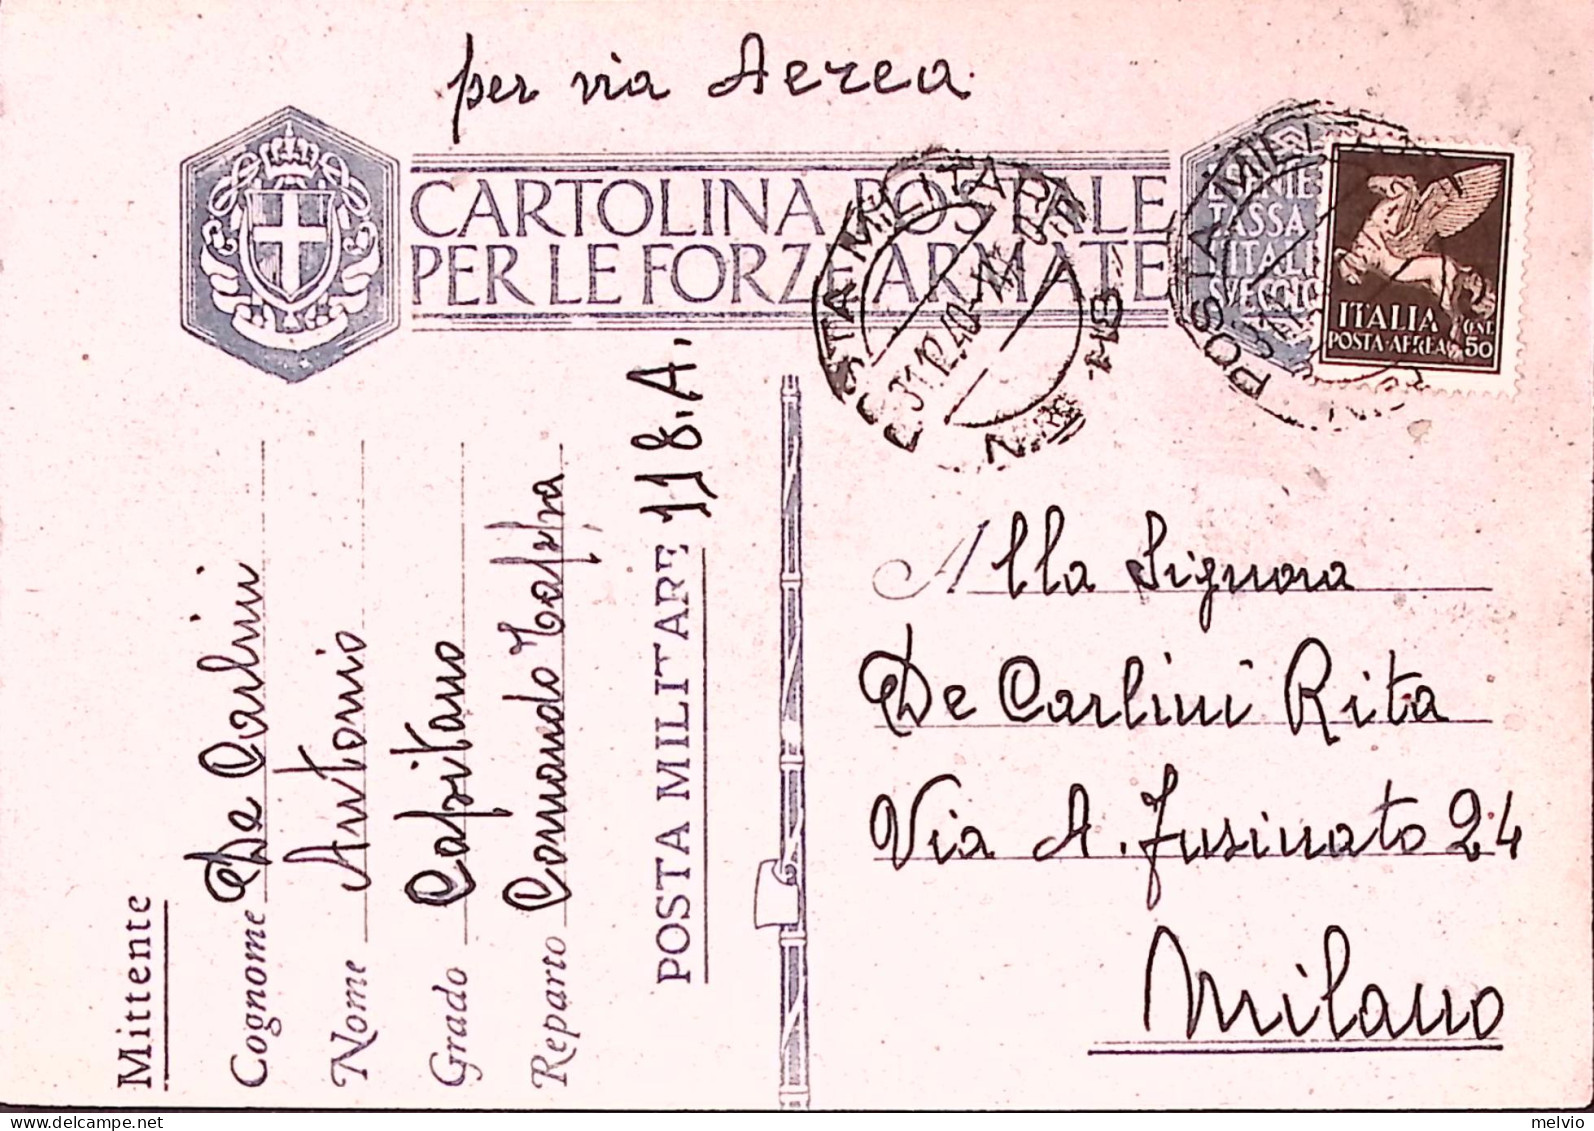 per via Aerea.
CARTOLINA POSTALE
PER LE FORZE ARMATE
POSTA MILITARE
31.12.40
POSTA MILI
TASSA
ITALIA
POSTA AEREA
CENT.
50
Mittente
Cognome De Carlini
Nome Antonio
Grado Capitano
Reparto Comando
POSTA MILITARE 118.A.
Alla Signora
De Carlini Rita
Via A. Fusinato 24
Milano
melvio